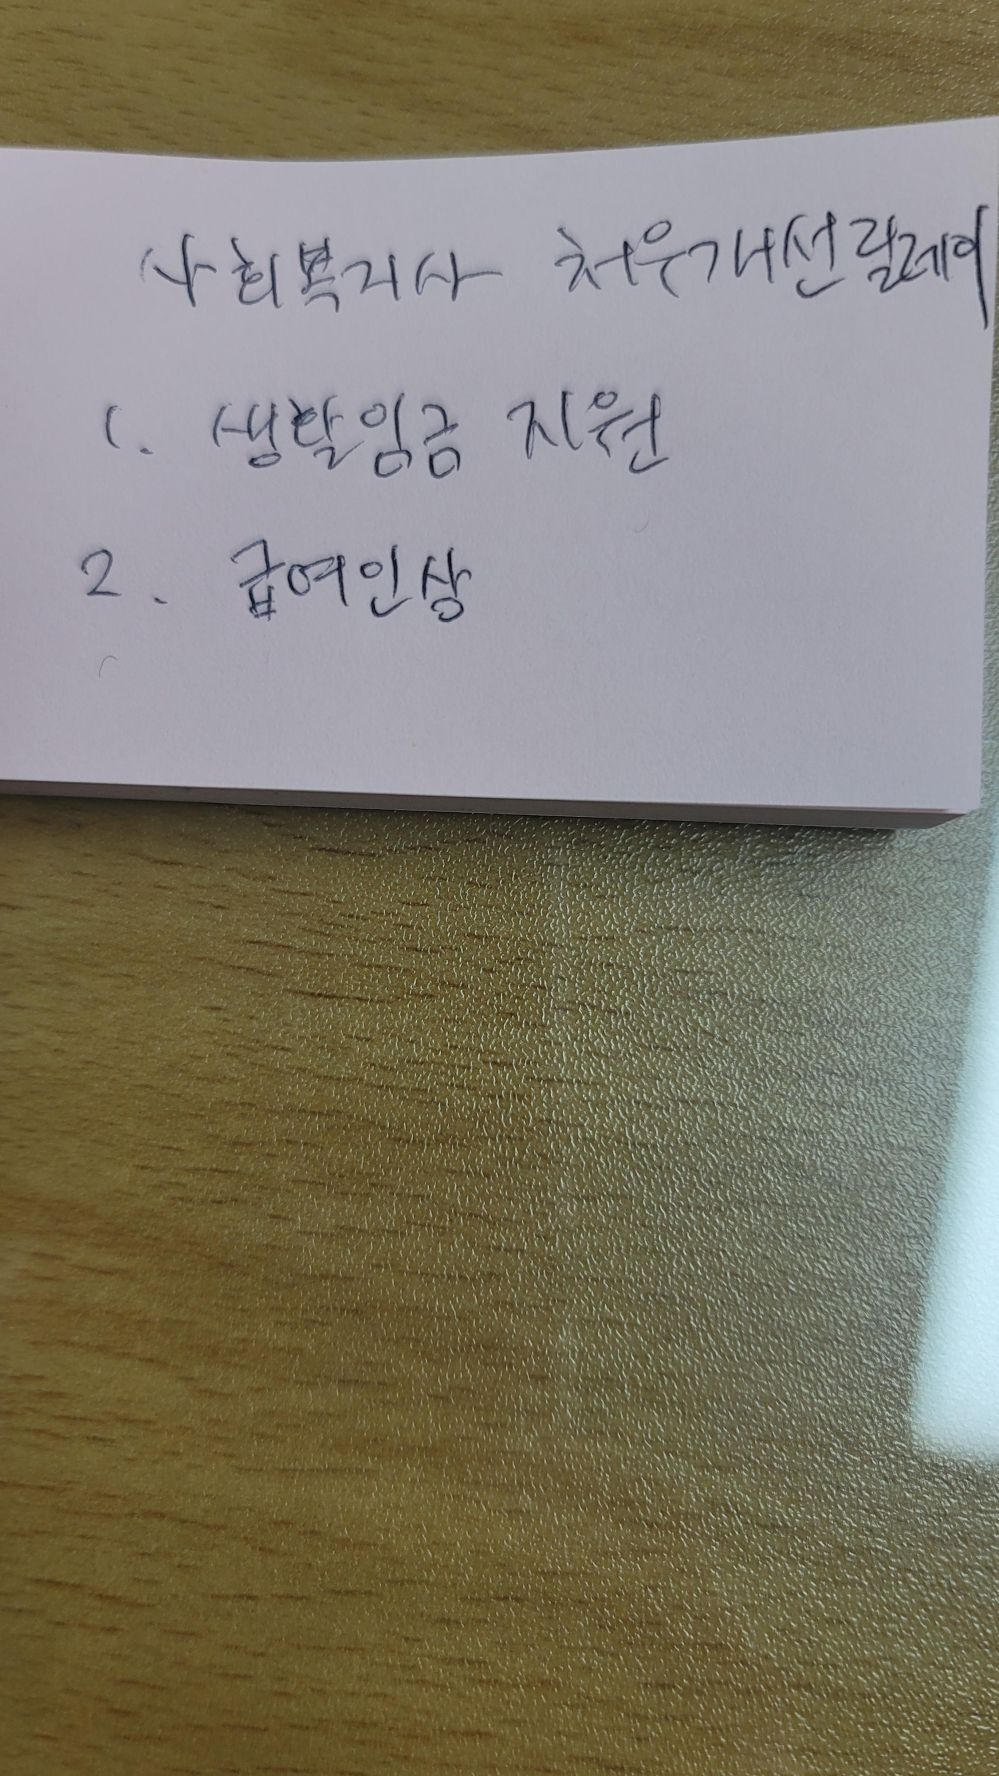 사회복지사 처우개선릴레이
1. 생활임금 지원
2. 급여인상